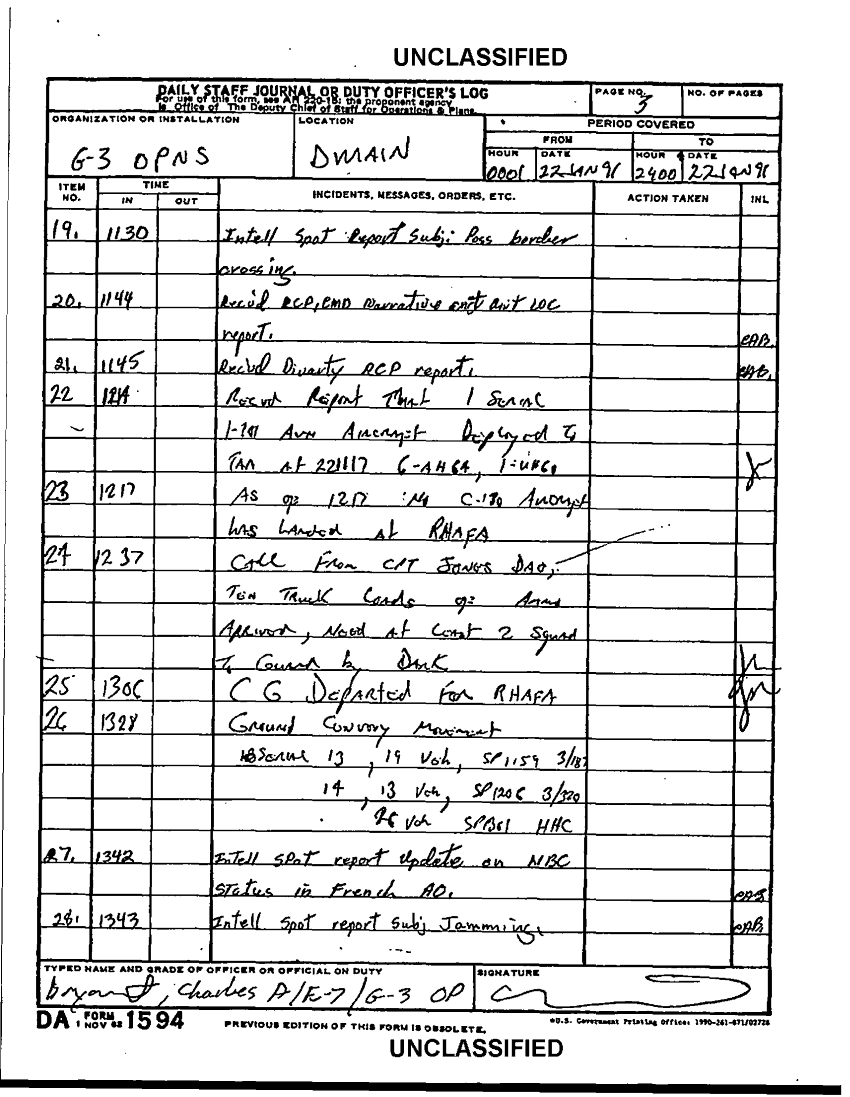 UNCLASSIFIED
DAILY STAFF JOURNAL OR DUTY OFFICER'S LOG
For use of this form, see AR 220-15; the proponent agency
is Office of The Deputy Chief of Staff for Operations & Plans.
PAGE NO.
3
NO. OF PAGES
ORGANIZATION OR INSTALLATION
G-3 OPNS
LOCATION
DMAIN
PERIOD COVERED
FROM
TO
HOUR
0001
DATE
22 JAN 91
HOUR
2400
DATE
22 JAN 91
ITEM NO.
TIME
IN
OUT
INCIDENTS, MESSAGES, ORDERS, ETC.
ACTION TAKEN
INL
19. 1130 Intell Spot Report Subj: Poss border
crossing.
20. 1144 Rec'd RCP, CMD Narrative
LOC
report.
21. 1145 Rec'vd Divarty RCP report.
22 1214 Report That 1 Serial
1-101 Avn Aircraft Deployed To
TAA At 221117 6-AH64, 1-UH60
23 1217 As of 1217 C-130 Aircraft
has Landed At RHAFA
24 1237 Call From CPT Jones DAO,
Ten Truck Loads of Ammo
Arrived, Need at Least 2 Squad
To Guard by Dark
25 1306 CG Departed For RHAFA
26 1328 Ground Convoy Movement
Serial 13, 19 Veh, SP1159 3/187
14, 13 Veh, SP1206 3/320
26 Veh SP1301 HHC
27. 1342 Intell Spot report Update on NBC
Status in French AO.
28. 1343 Intell Spot report Subj Jamming.
TYPED NAME AND GRADE OF OFFICER OR OFFICIAL ON DUTY
Bryant, Charles A/E-7/G-3 OP
SIGNATURE
DA FORM 1 NOV 62 1594
PREVIOUS EDITION OF THIS FORM IS OBSOLETE.
*U.S. Government Printing Office: 1990-261-871/02728
UNCLASSIFIED